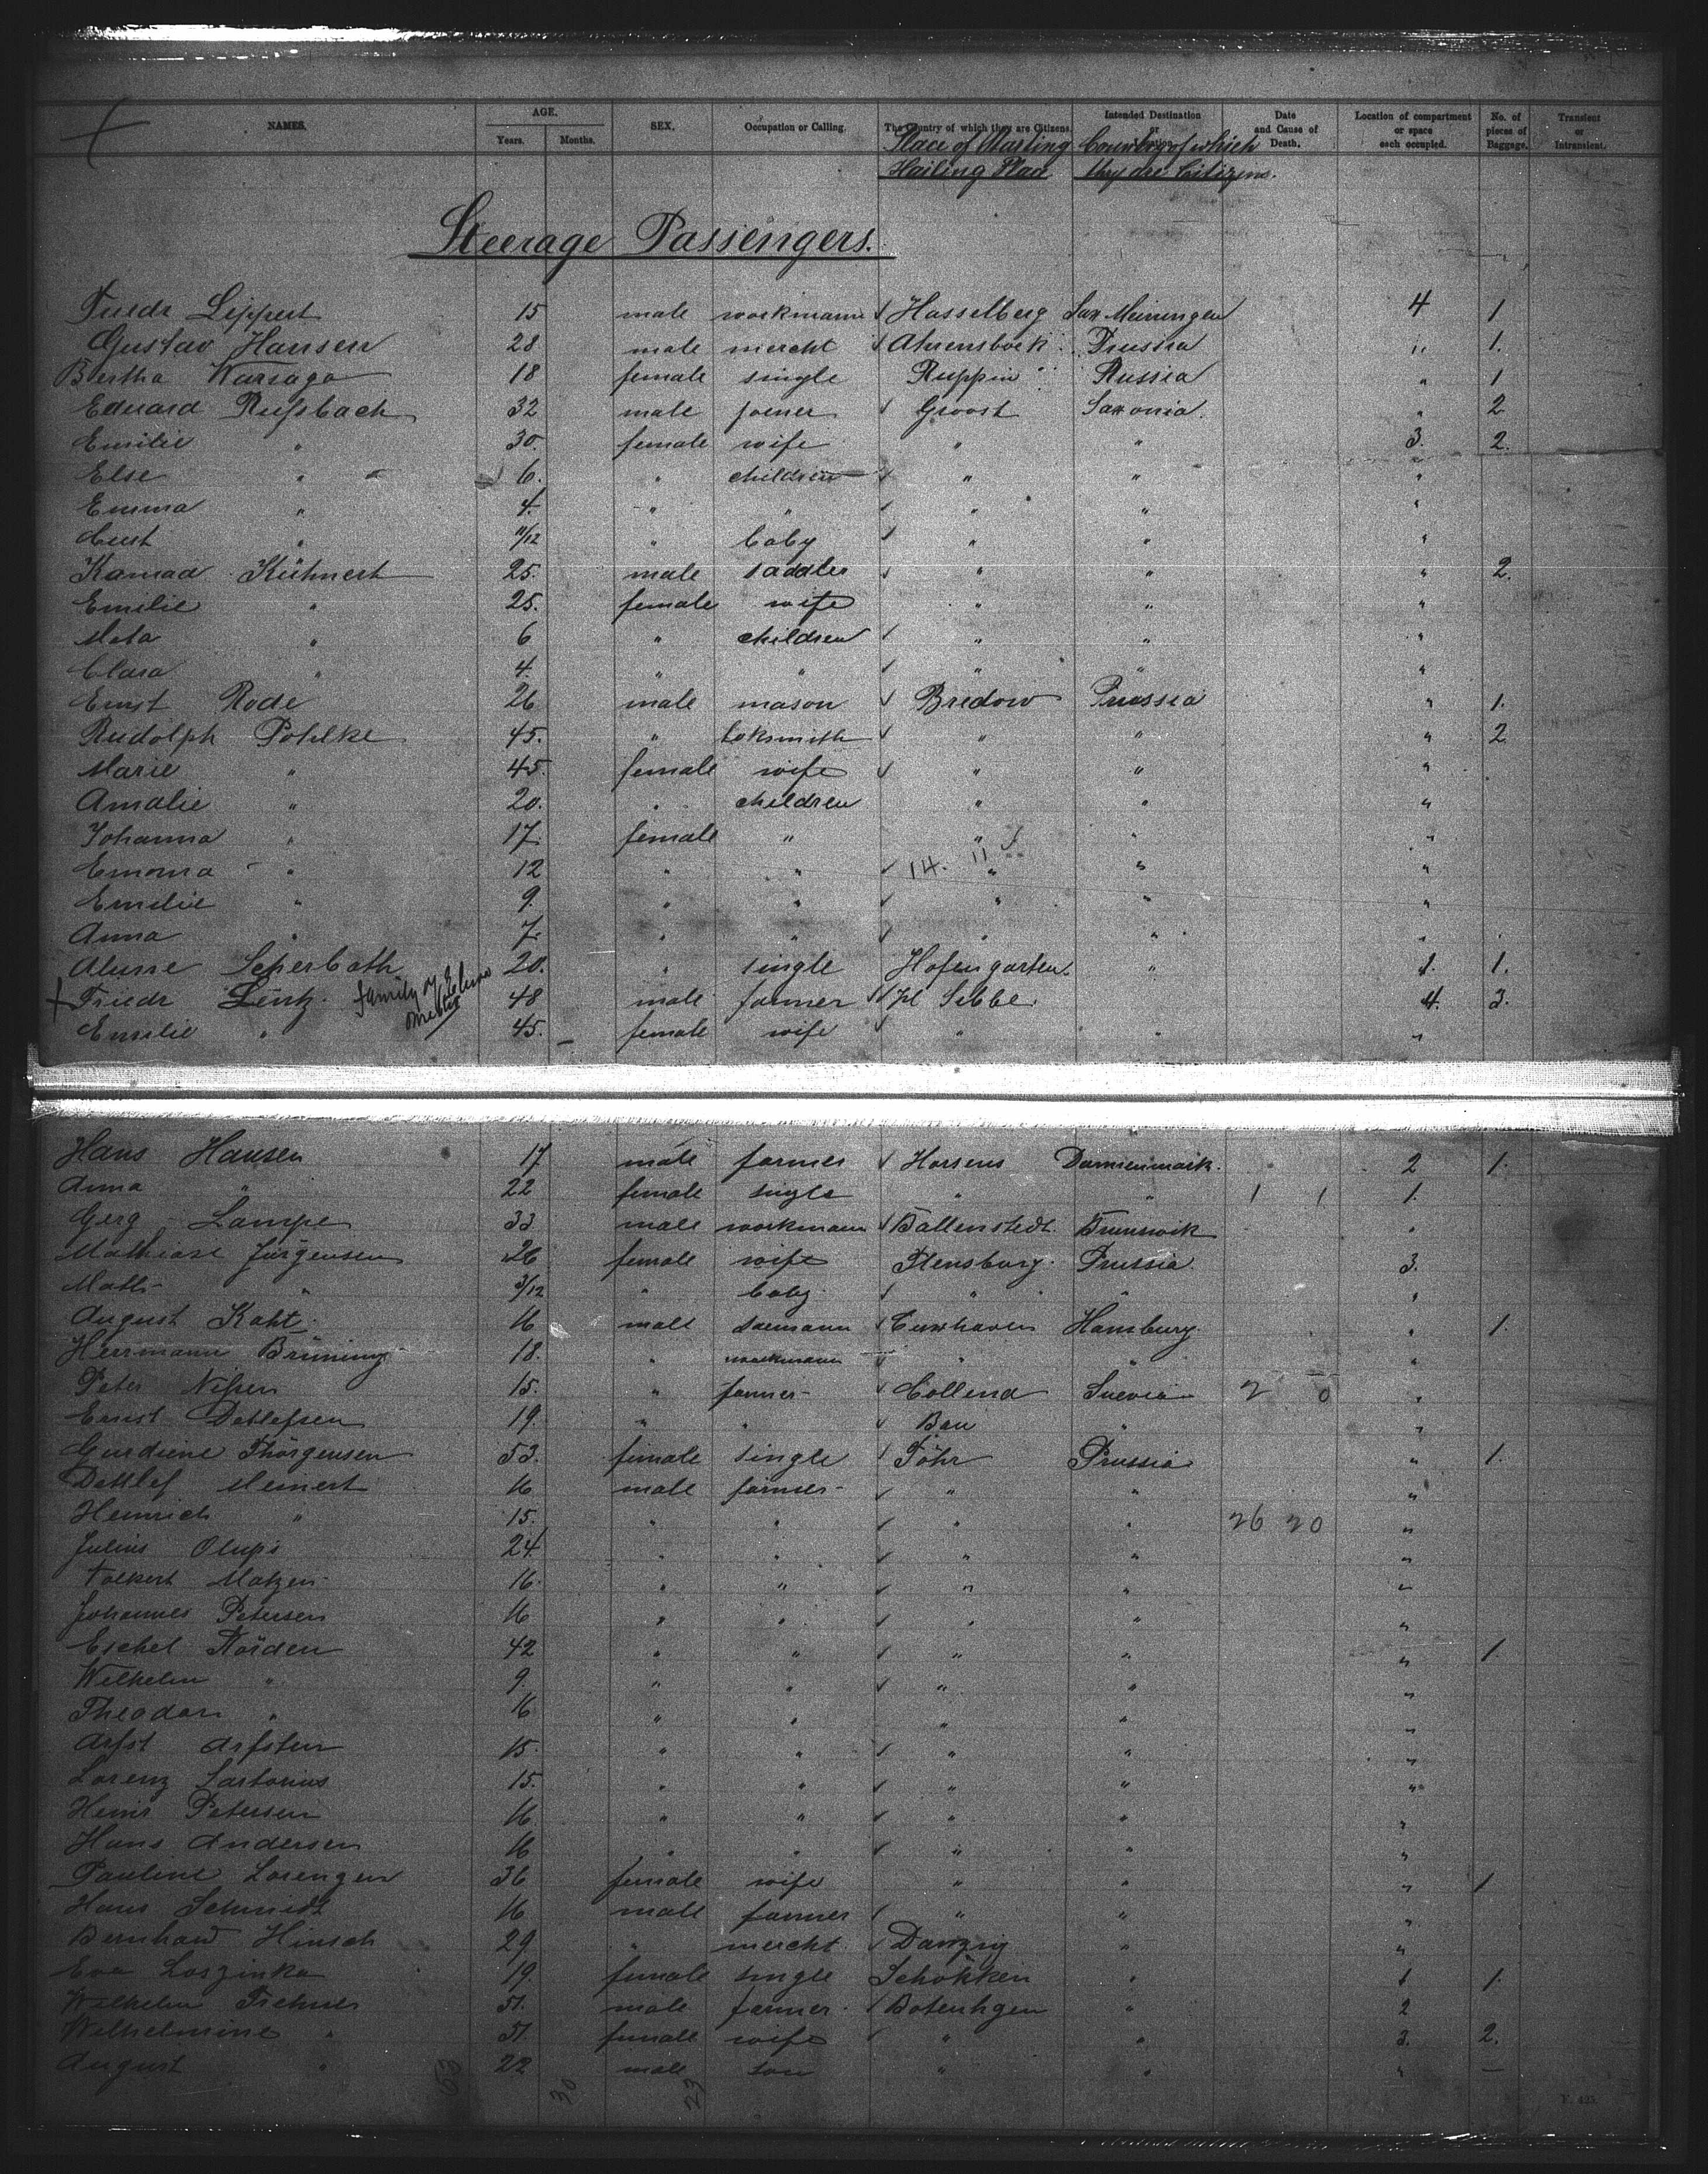 NAMES. AGE. Years. Months. SEX. Occupation or Calling. The Country of which they are Citizens. Intended Destination or Location. Date and Cause of Death. Location of compartment or space each occupied. No. of pieces of Baggage. Transient or Intransient.
Place of Starting Country of which
Hailing Place they are Citizens.
Steerage Passengers.
Friedr Lippert 15 male workmann Hasselberg Sax Meiningen 4 1
Gustav Hansen 28 male mercht Ahrensboek Prussia " 1.
Bertha Warsaga 18 female single Ruppin Russia " 1
Eduard Rußbach 32 male joiner Groost Saxonia. " 2
Emilie " 30. female wife " " 3. 2.
Else " 6. " children " " "
Emma " 4. " " " " "
Curt " 11/12 " baby " " "
Konrad Kühnert 25. male saddler " " " 2.
Emilie " 25. female wife " " "
Meta " 6 " children " " "
Clara " 4. " " " " "
Ernst Rode 26 male mason Bredow Prussia " 1.
Rudolph Pohlke 45. " loksmith " " " 2
Marie " 45. female wife " " "
Amalie " 20. " children " " "
Johanna " 17. female " " " "
Emma " 12 " " 14. 11 " " "
Emilie " 9. " " " " "
Anna " 7. " " " " "
Scherbath 20. " single Hofengarten. " 1. 1.
Friedr Lentz. family of 48 male farmer Kl Sibbe. 4. 3.
Emilie " 45. female wife " " "
Hans Hansen 17 male farmer Horsens Dannemark. 2 1.
Anna " 22 female single " " 1 1 1.
Gerg Lampe 33. male workmann Ballenstedt. Brunswik "
Mathiase Jürgensen 26 female wife Flensburg. Prussia. 3.
Math " 3/12 " baby " " "
August Kaht. 16 male seemann Cuxhaven Hamburg. " 1.
Herrmann Brüning 18. " workmann " " "
Peter Nissen 15. " farmer Collend Suevia 2 0 "
Ernst Detlefsen 19. " " Bau " "
Gurdine Thörgensen 53. female single Föhr Prussia " 1.
Detlef Meinert 16 male farmer " " "
Heinrich " 15. " " " " 26 20 "
Julius Olups 24. " " " " "
Volkert Matzen 16. " " " " "
Johannes Petersen 16 " " " " "
Eschel Nörden 42 " " " " " 1.
Wilhelm " 9. " " " " "
Theodor " 16 " " " " "
Arfst Arfsten 15. " " " " "
Lorenz Sartorius 15. " " " " "
Heinr Petersen 16. " " " " "
Hans Andersen 16 " " " " "
Pauline Lorenzen 36 female wife " " " 1
Hans Schmidt 16 male farmer " " "
Bernhard Hinsch 29 " mercht. Danzig " "
Eva Loszinka 19. female single Schokken " 1 1.
Wilhelm 51. male farmer. " 2
Wilhelmine " 51. female wife " " 3. 2.
August " 22 male son " " " —
63 30 23